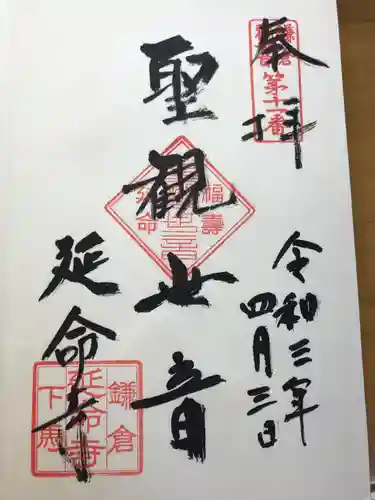 奉拝
令和三年
四月三日
聖観世音
延命寺
第十一番
鎌倉
福壽
延命
鎌倉
延命寺
下馬